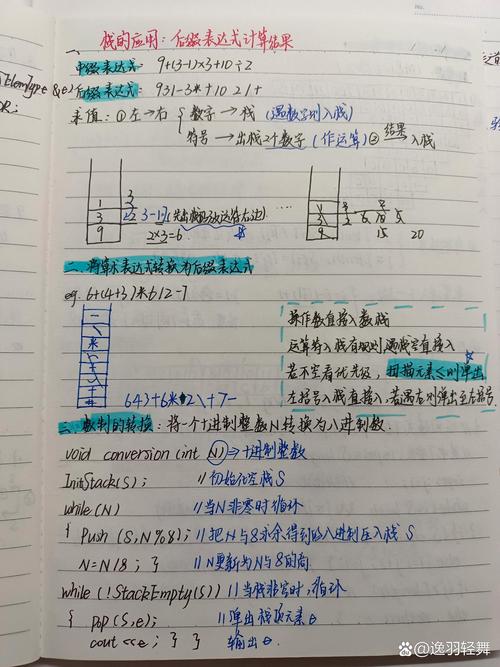 一、栈的应用：后缀表达式计算结果
中缀表达式： 9+(3-1)×3+10÷2
后缀表达式： 931-3*+10 2/+
ElemType &e)
OR;
求值：①左→右 { 数字 → 栈 (遇数字则入栈)
符号 → 出栈2个数字 (作运算) ② 结果入栈
1
3
9
3-1 (先出栈的放运算符右边)
2×3=6
15 20
二、将算术表达式转换为后缀表达式
eg. 6+(4+3)*6/2-7
操作数直接入数栈
运算符入栈有规则，遇栈空直接入
若不空看优先级，扫描元素≤则弹出
左括号入栈直接入，若遇右则弹出至左括号
643+6*2\+7-
三、数制的转换：将一个十进制整数N转换为八进制数.
void conversion (int N) ⇒ 十进制整数
InitStack(S); //初始化空栈S
while(N) //当N非零时循环
{ Push (S,N%8); //把N与8求余得到的八进制压入栈S
N=N/8; } //N更新为N与8的商
while (!StackEmpty(S)) //当栈非空时，循环
{ pop(S,e); //弹出栈顶元素e
cout <<e; } } 输出e
@逸羽轻舞